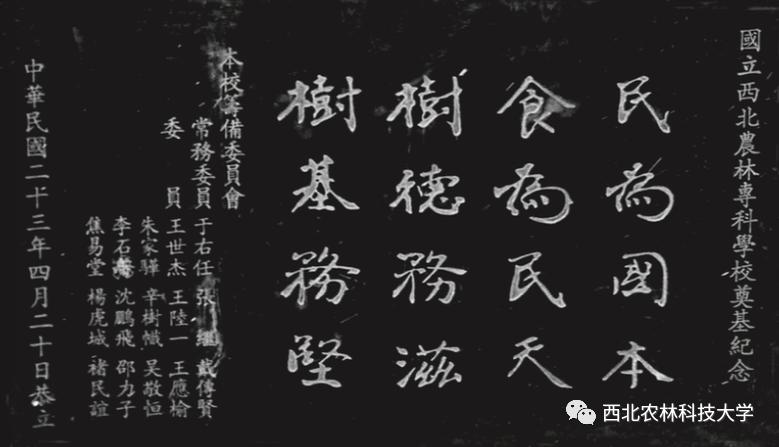 國立西北農林專科學校奠基紀念
民為國本
食為民天
樹德務滋
樹基務堅
本校籌備委員會
常務委員 于右任 張繼 戴傳賢
委員 王世杰 王陸一 王應榆
朱家驊 辛樹幟 吳敬恒
李石曾 沈鵬飛 邵力子
焦易堂 楊虎城 褚民誼
中華民國二十三年四月二十日恭立
西北农林科技大学